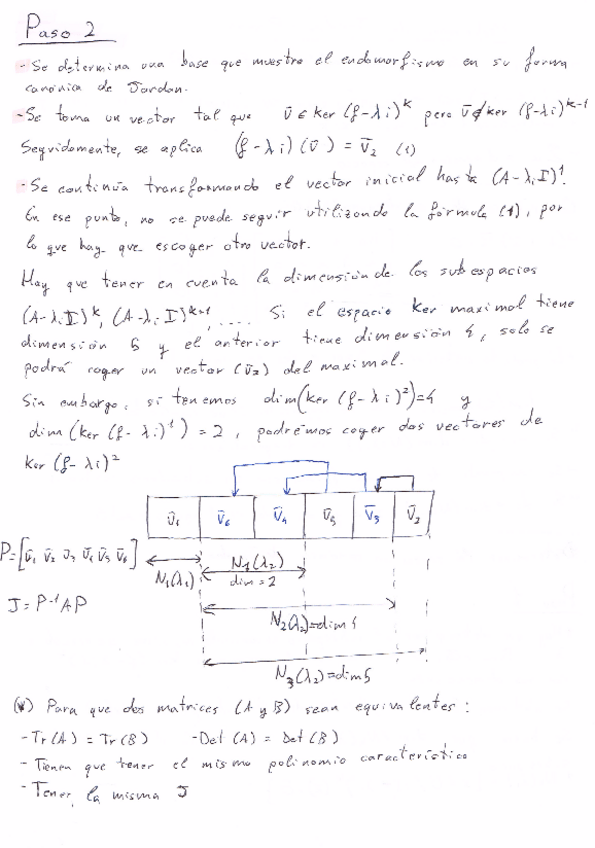 Paso 2
- Se determina una base que muestre el endomorfismo en su forma
canónica de Jordan.
- Se toma un vector tal que v̄ ∈ ker (f-λi)^k pero v̄ ∉ ker (f-λi)^k-1
Seguidamente, se aplica (f-λi)(v̄) = v̄₂ (1)
- Se continúa transformando el vector inicial hasta (A-λiI)¹.
En ese punto, no se puede seguir utilizando la fórmula (1), por
lo que hay que escoger otro vector.
Hay que tener en cuenta la dimensión de los subespacios
(A-λiI)^k, (A-λiI)^k-1, .... Si el espacio ker maximal tiene
dimensión 5 y el anterior tiene dimensión 4, solo se
podrá coger un vector (v̄₂) del maximal.
Sin embargo, si tenemos dim(ker (f-λi)²)=4 y
dim (ker (f-λi)¹) = 2, podremos coger dos vectores de
ker (f-λi)²
v̄₁ v̄₆ v̄₄ v̄₅ v̄₃ v̄₂
P=[v̄₁ v̄₂ v̄₃ v̄₄ v̄₅ v̄₆]
N₁(λ₁) N₁(λ₂)
dim = 2
J = P⁻¹AP
N₂(λ₂)=dim 4
N₃(λ₂)=dim 5
(*) Para que dos matrices (A y B) sean equivalentes:
- Tr(A) = Tr(B) - Det(A) = Det(B)
- Tienen que tener el mismo polinomio característico
- Tener la misma J